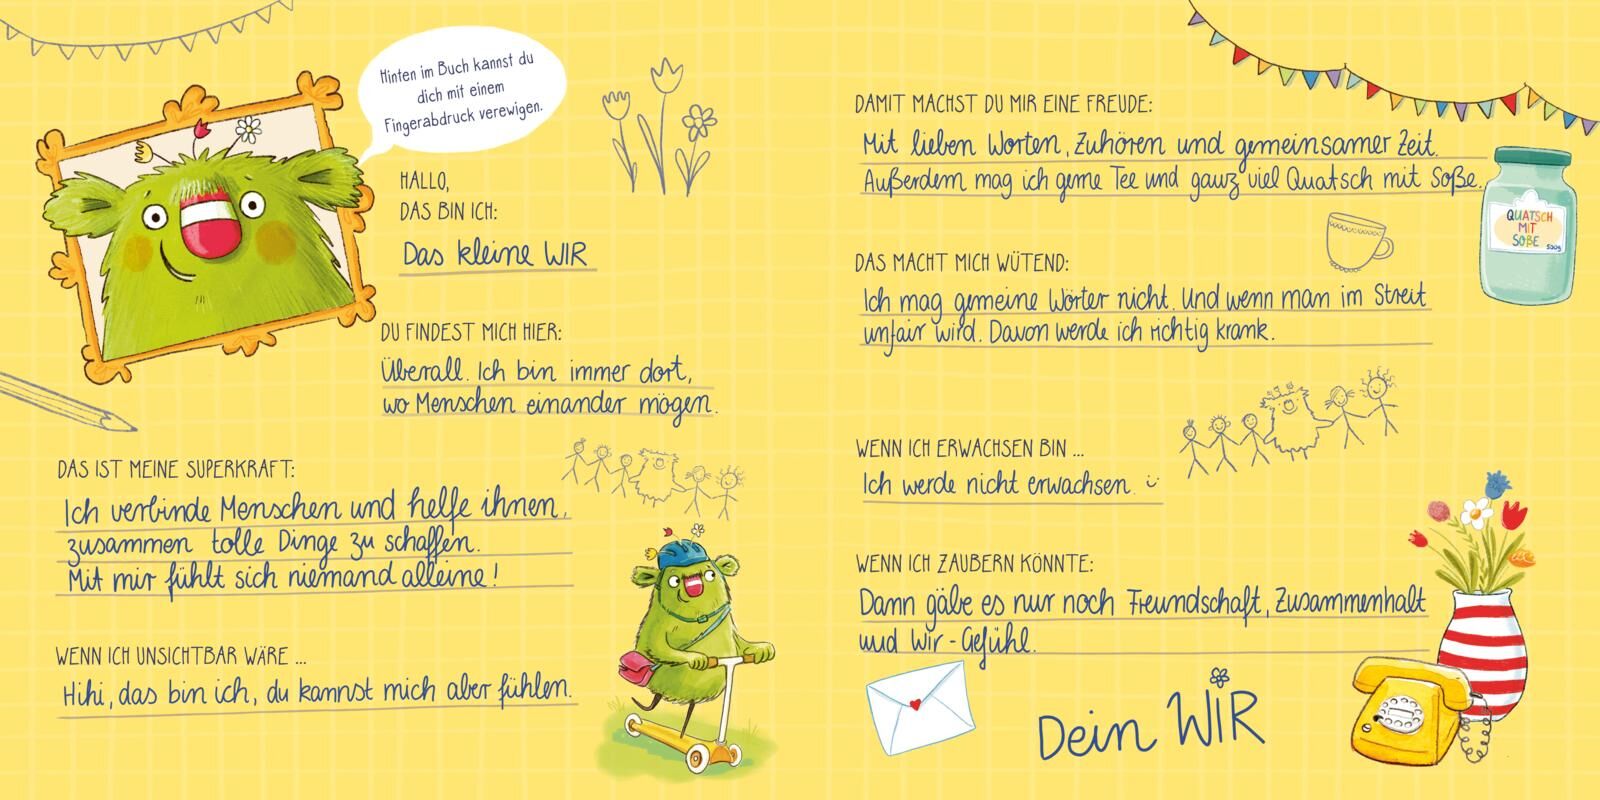 Hinten im Buch kannst du
dich mit einem
Fingerabdruck verewigen.
HALLO,
DAS BIN ICH:
Das kleine WIR
DU FINDEST MICH HIER:
Überall. Ich bin immer dort,
wo Menschen einander mögen.
DAS IST MEINE SUPERKRAFT:
Ich verbinde Menschen und helfe ihnen,
zusammen tolle Dinge zu schaffen.
Mit mir fühlt sich niemand alleine!
WENN ICH UNSICHTBAR WÄRE ...
Hihi, das bin ich, du kannst mich aber fühlen.
DAMIT MACHST DU MIR EINE FREUDE:
Mit lieben Worten, Zuhören und gemeinsamer Zeit.
Außerdem mag ich gerne Tee und ganz viel Quatsch mit Soße.
QUATSCH
MIT
SOßE
500g
DAS MACHT MICH WÜTEND:
Ich mag gemeine Wörter nicht. Und wenn man im Streit
unfair wird. Davon werde ich richtig krank.
WENN ICH ERWACHSEN BIN ...
Ich werde nicht erwachsen. :)
WENN ICH ZAUBERN KÖNNTE:
Dann gäbe es nur noch Freundschaft, Zusammenhalt
und Wir-Gefühl.
Dein WIR